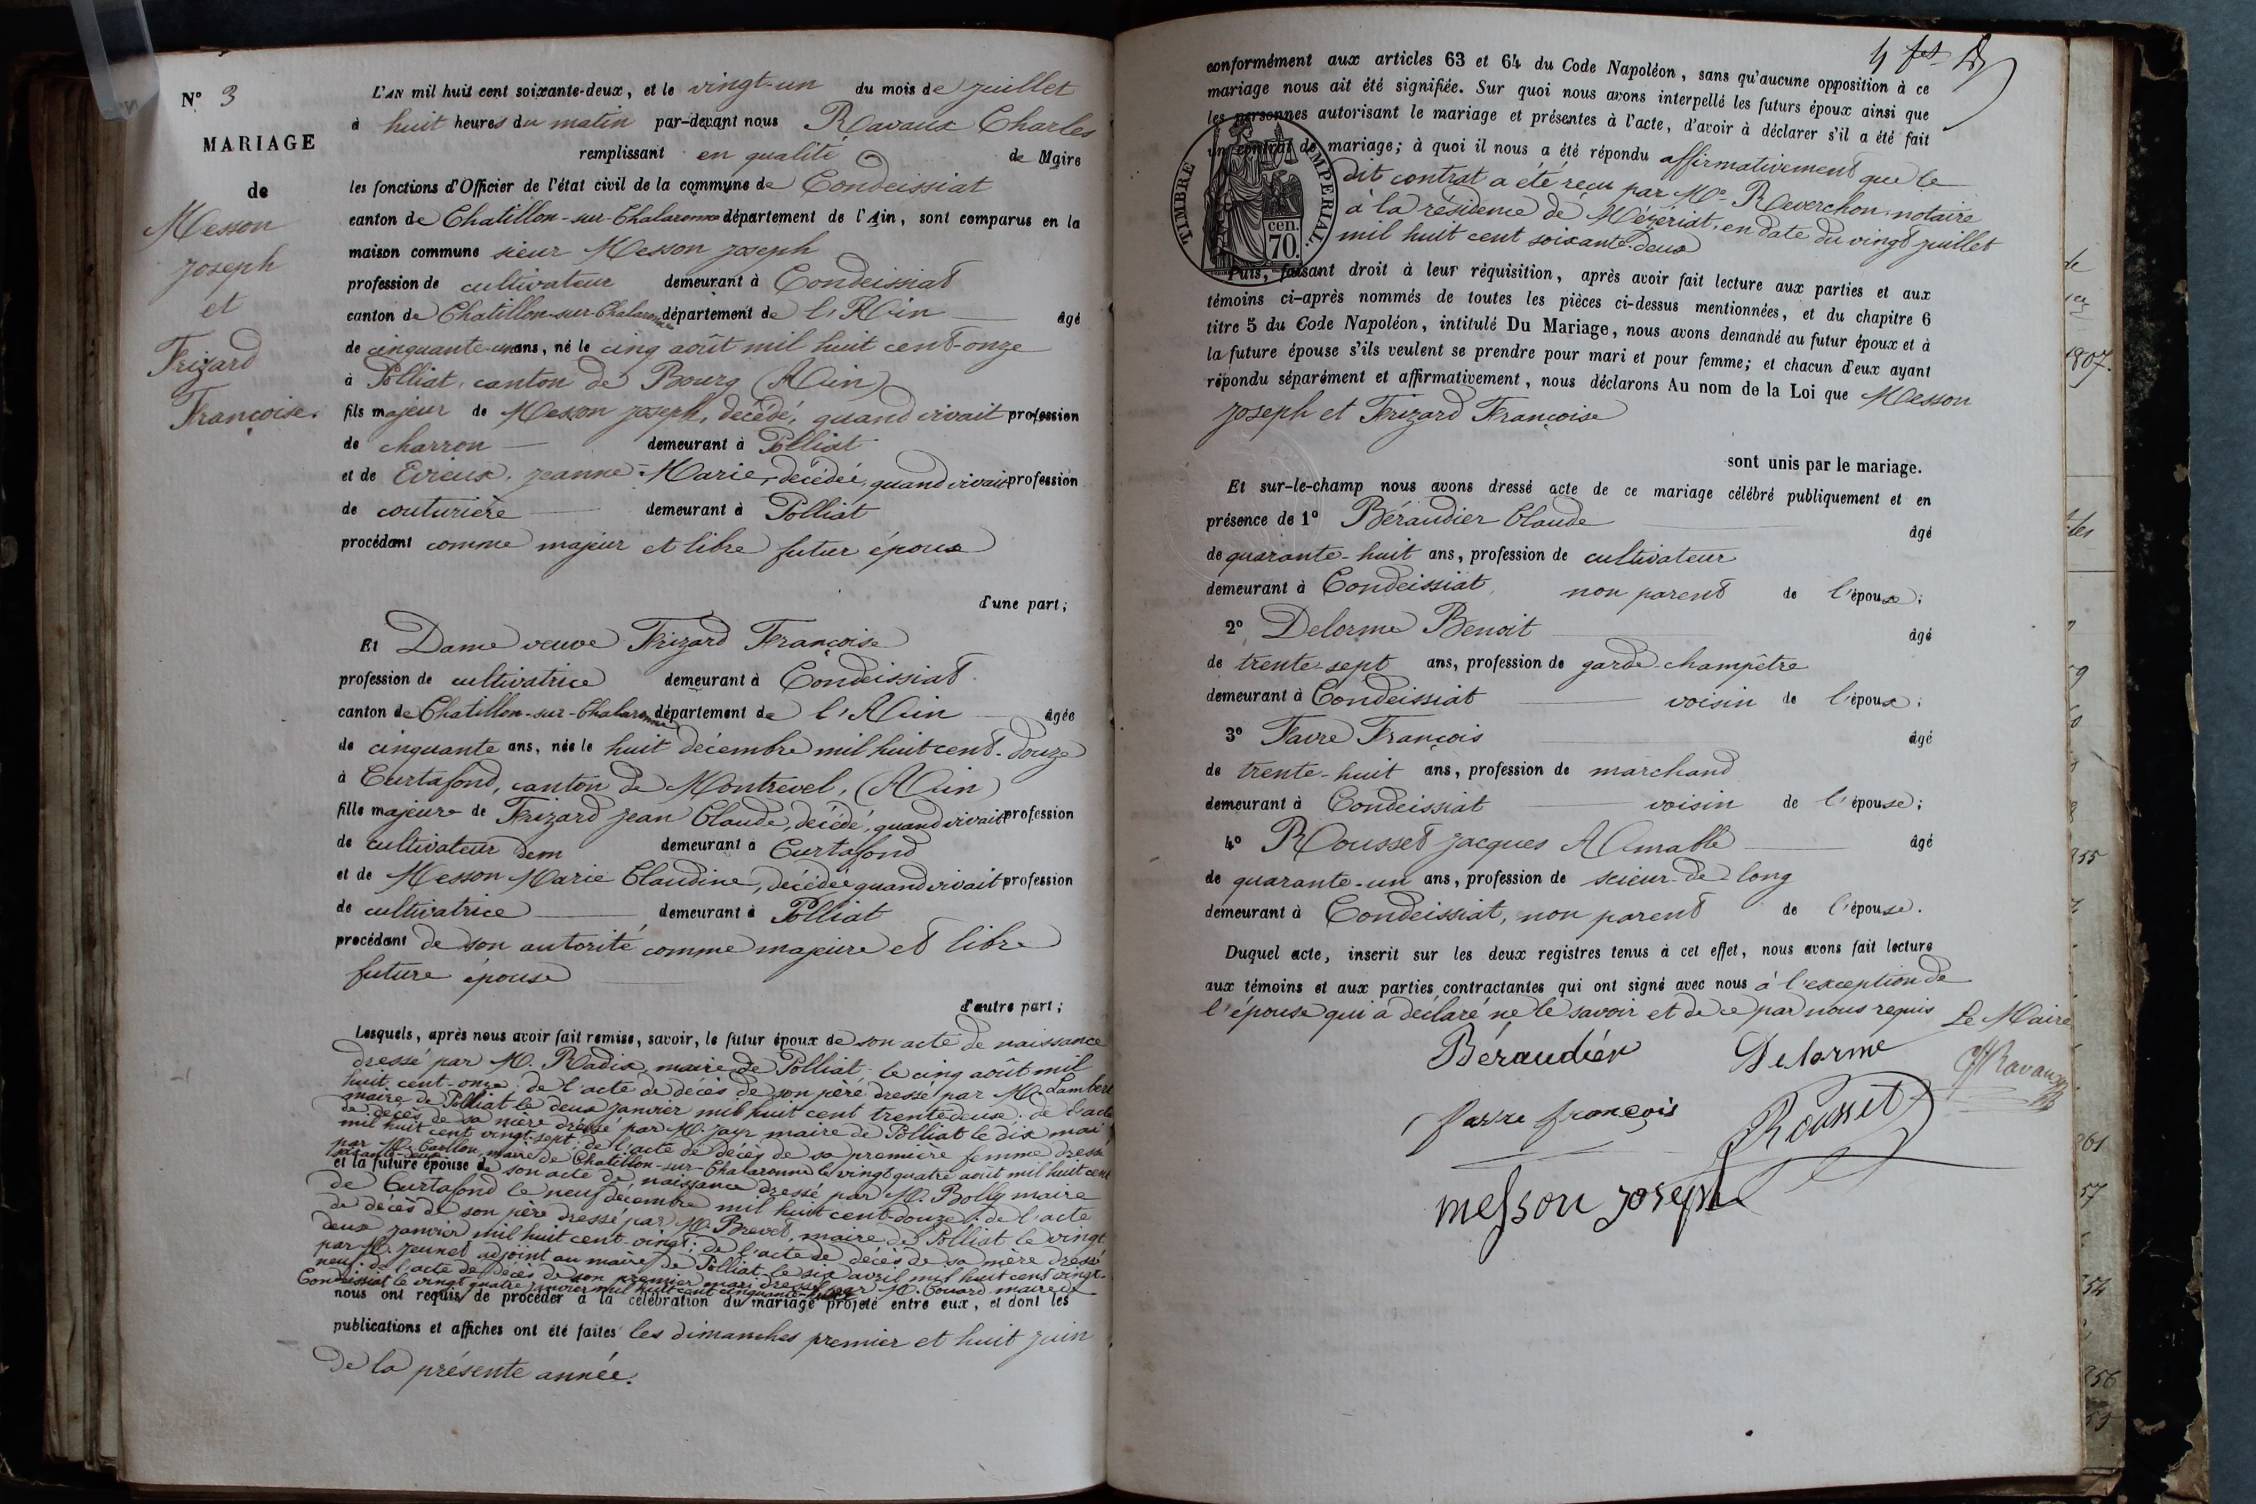 N° 3
MARIAGE
de
Messon
Joseph
et
Frizard
Françoise.
L'AN mil huit cent soixante-deux, et le vingt-un du mois de juillet
à huit heures du matin par-devant nous Ravaux Charles
remplissant en qualité de Maire
les fonctions d'Officier de l'état civil de la commune de Condeissiat
canton de Chatillon-sur-Chalaronne département de l'Ain, sont comparus en la
maison commune sieur Messon Joseph
profession de cultivateur demeurant à Condeissiat
canton de Chatillon-sur-Chalaronne département de l'Ain âgé
de cinquante-un ans, né le cinq août mil huit cent-onze
à Polliat, canton de Bourg (Ain)
fils majeur de Messon Joseph, décédé, quand vivait profession
de charron demeurant à Polliat
et de Evieux, Jeanne-Marie, décédée, quand vivait profession
de couturière demeurant à Polliat
procédant comme majeur et libre futur époux
d'une part;
Et Dame veuve Frizard Françoise
profession de cultivatrice demeurant à Condeissiat
canton de Chatillon-sur-Chalaronne département de l'Ain âgée
de cinquante ans, née le huit décembre mil huit cent-douze
à Curtafond, canton de Montrevel, (Ain)
fille majeure de Frizard Jean Claude, décédé, quand vivait profession
de cultivateur dem demeurant à Curtafond
et de Messon Marie Claudine, décédée quand vivait profession
de cultivatrice demeurant à Polliat
procédant de son autorité comme majeure et libre
future épouse
d'autre part;
Lesquels, après nous avoir fait remise, savoir, le futur époux de son acte de naissance
dressé par M. Radix, maire de Polliat le cinq août mil
huit cent-onze; de l'acte de décès de son père dressé par M. Lambert
maire de Polliat le deux janvier mil huit cent trente-deux; de l'acte
de décès de sa mère dressé par M. Jayr maire de Polliat le dix mai
mil huit cent vingt-sept; de l'acte de décès de sa première femme dressé
par M. maire de Chatillon-sur-Chalaronne le vingt quatre août mil huit cent
et la future épouse de son acte de naissance dressé par M. Bolly maire
de Curtafond le neuf décembre mil huit cent-douze; de l'acte
de décès de son père dressé par M. Brevet, maire de Polliat le vingt
deux janvier mil huit cent-vingt; de l'acte de décès de sa mère dressé
par M. Jeunet adjoint au maire de Polliat le six avril mil huit cent vingt-
neuf; de l'acte de décès de son premier mari dressé par M. Couard maire de
Condeissiat le vingt quatre janvier mil huit cent cinquante
nous ont requis de procéder à la célébration du mariage projeté entre eux, et dont les
publications et affiches ont été faites les dimanches premier et huit juin
de la présente année.
conformément aux articles 63 et 64 du Code Napoléon, sans qu'aucune opposition à ce
mariage nous ait été signifiée. Sur quoi nous avons interpellé les futurs époux ainsi que
les personnes autorisant le mariage et présentes à l'acte, d'avoir à déclarer s'il a été fait
un contrat de mariage; à quoi il nous a été répondu affirmativement que le
dit contrat a été reçu par Me Reverchon notaire
à la résidence de Mézériat, en date du vingt juillet
mil huit cent soixante-deux
TIMBRE IMPÉRIAL.
70. cen.
Puis, faisant droit à leur réquisition, après avoir fait lecture aux parties et aux
témoins ci-après nommés de toutes les pièces ci-dessus mentionnées, et du chapitre 6
titre 5 du Code Napoléon, intitulé Du Mariage, nous avons demandé au futur époux et à
la future épouse s'ils veulent se prendre pour mari et pour femme; et chacun d'eux ayant
répondu séparément et affirmativement, nous déclarons Au nom de la Loi que Messon
Joseph et Frizard Françoise
sont unis par le mariage.
Et sur-le-champ nous avons dressé acte de ce mariage célébré publiquement et en
présence de 1° Béraudier Claude âgé
de quarante-huit ans, profession de cultivateur
demeurant à Condeissiat, non parent de l'épouse;
2° Delorme Benoit âgé
de trente-sept ans, profession de garde-champêtre
demeurant à Condeissiat voisin de l'époux;
3° Favre François âgé
de trente-huit ans, profession de marchand
demeurant à Condeissiat voisin de l'épouse;
4° Rousset Jacques Aimable âgé
de quarante-un ans, profession de scieur de long
demeurant à Condeissiat, non parent de l'épouse.
Duquel acte, inscrit sur les deux registres tenus à cet effet, nous avons fait lecture
aux témoins et aux parties contractantes qui ont signé avec nous à l'exception de
l'épouse qui a déclaré ne le savoir et de ce par nous requis
Le Maire
Béraudier Delorme Ravaux
favre françois Rousset
messon joseph
1807.
855
861
57
854
856